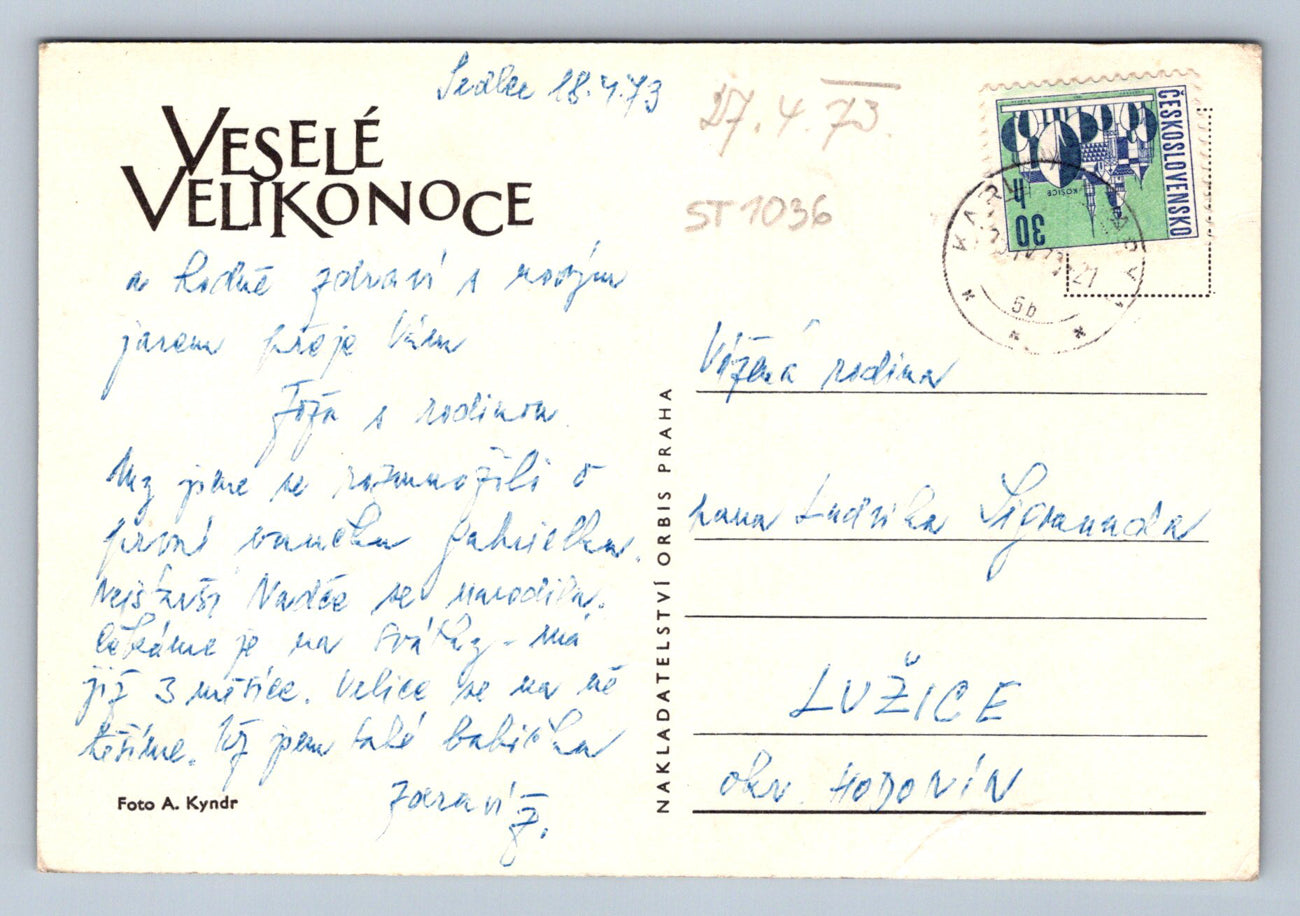 Sedlec 18.4.73
27.4.73.
ST 1036
VESELÉ
VELIKONOCE
a hodně zdraví s novým
jarem přeje Vám
Joža s rodinou.
My jsme se rozmnožili o
první vnučku Gabrielku.
Nejstarší Nadče se narodila.
Čekáme je na svátky - má
již 3 měsíce. Velice se na ně
těšíme. Též jsem také babička
Zdraví J.
Foto A. Kyndr
NAKLADATELSTVÍ ORBIS PRAHA
ČESKOSLOVENSKO
KOŠICE
30 h
KARL VARY
6b
Vážená rodina
pana Ludvíka
LUŽICE
okr. HODONÍN